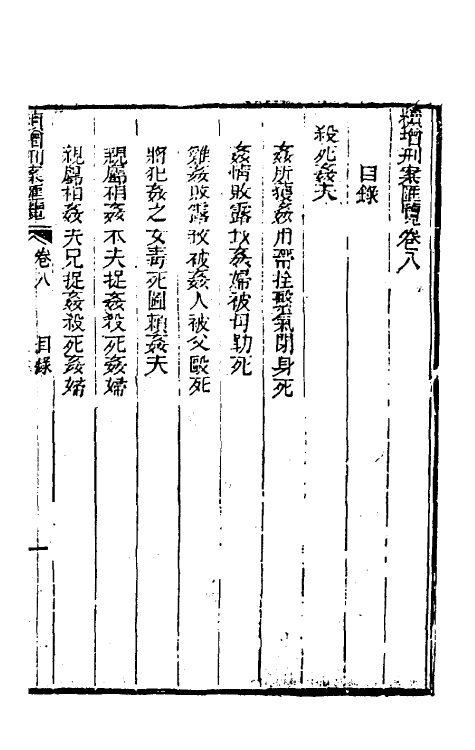 續增刑案匯覽卷八
目錄
殺死姦夫
姦所獲姦用帶拴毆氣閉身死
姦情敗露致姦婦被母勒死
雞姦敗露致被姦人被父毆死
將犯姦之女毒死圖賴姦夫
親屬相姦本夫捉姦殺死姦婦
親屬相姦夫兄捉姦殺死姦婦
續增刑案匯覽 卷八 目錄 一